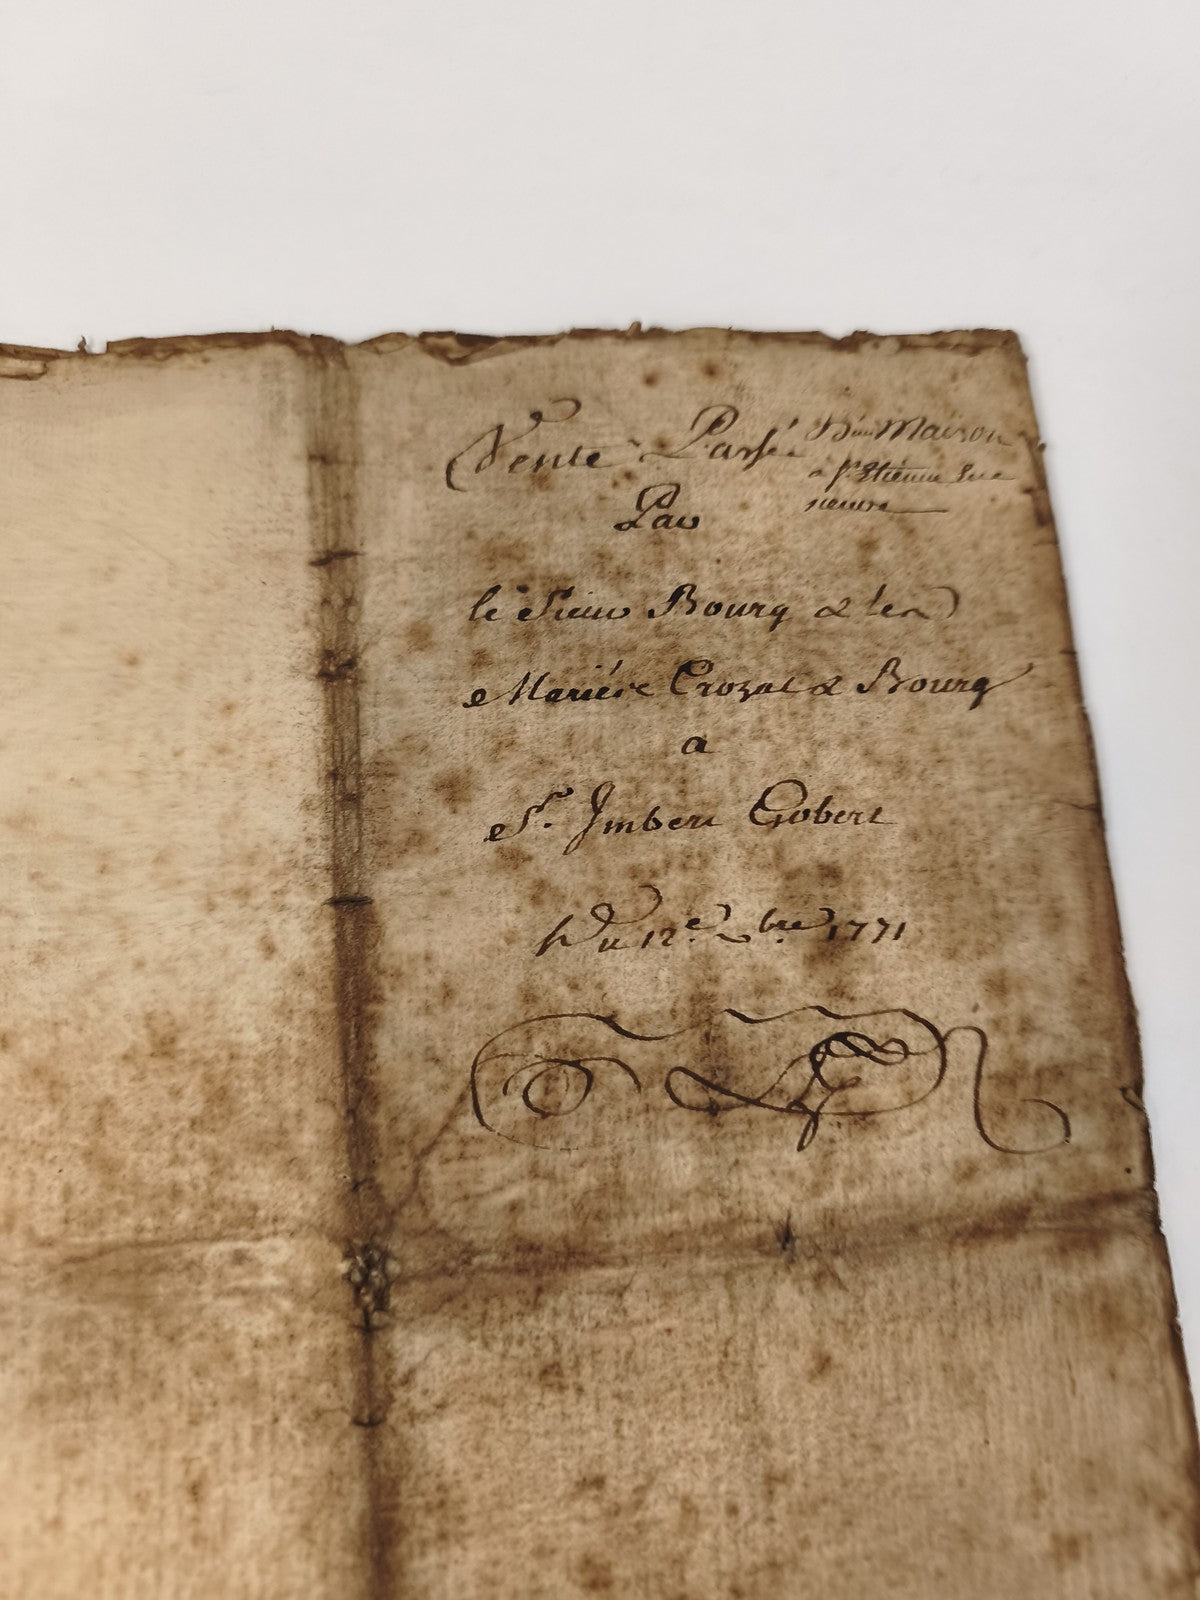 Vente Passée
d'une Maison
à St. Etienne Rue
neuve
Par
le Sieur Bourg & les
Mariés Crozat & Bourg
a
Sr. Imbert Gobert
Du 12e. bre 1771